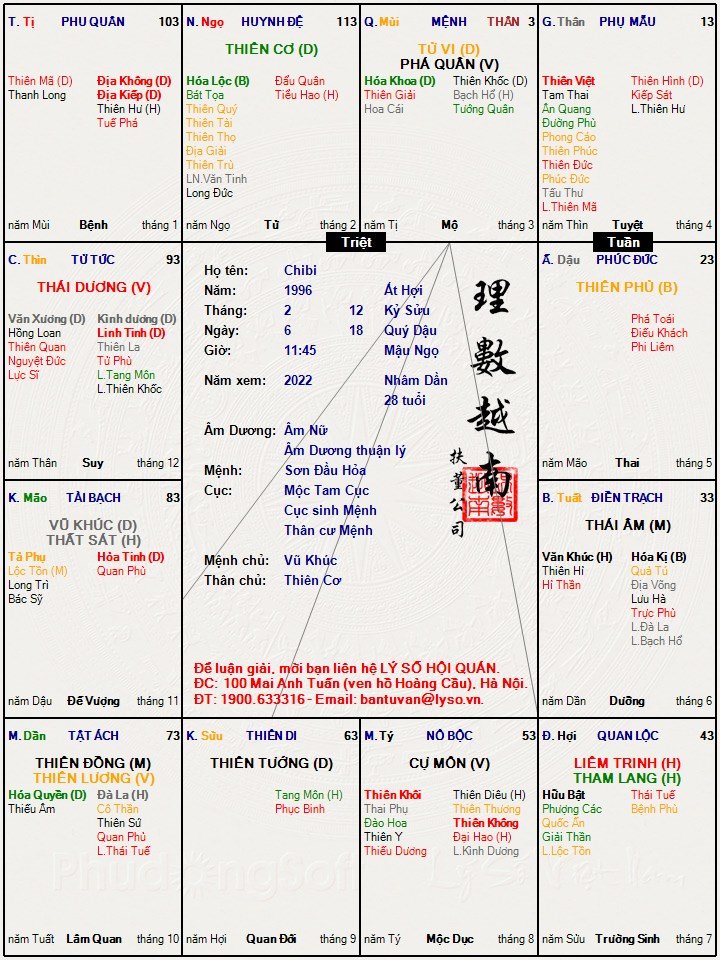 T. Tị PHU QUÂN 103
Thiên Mã (D) Địa Không (D)
Thanh Long Địa Kiếp (D)
Thiên Hư (H)
Tuế Phá
năm Mùi Bệnh tháng 1
N. Ngọ HUYNH ĐỆ 113
THIÊN CƠ (D)
Hóa Lộc (B) Đẩu Quân
Bát Tọa Tiểu Hao (H)
Thiên Quý
Thiên Tài
Thiên Thọ
Địa Giải
Thiên Trù
LN.Văn Tinh
Long Đức
năm Ngọ Tử tháng 2
Q. Mùi MỆNH THÂN 3
TỬ VI (D)
PHÁ QUÂN (V)
Hóa Khoa (D) Thiên Khốc (D)
Thiên Giải Bạch Hổ (H)
Hoa Cái Tướng Quân
năm Tị Mộ tháng 3
G. Thân PHỤ MẪU 13
Thiên Việt Thiên Hình (D)
Tam Thai Kiếp Sát
Ấn Quang L.Thiên Hư
Đường Phù
Phong Cáo
Thiên Phúc
Thiên Đức
Phúc Đức
Tấu Thư
L.Thiên Mã
năm Thìn Tuyệt tháng 4
Triệt
Tuần
C. Thìn TỬ TỨC 93
THÁI DƯƠNG (V)
Văn Xương (D) Kình dương (D)
Hồng Loan Linh Tinh (D)
Thiên Quan Thiên La
Nguyệt Đức Tử Phù
Lực Sĩ L.Tang Môn
L.Thiên Khốc
năm Thân Suy tháng 12
Họ tên: Chibi
Năm: 1996 Ất Hợi
Tháng: 2 12 Kỷ Sửu
Ngày: 6 18 Quý Dậu
Giờ: 11:45 Mậu Ngọ
Năm xem: 2022 Nhâm Dần
28 tuổi
Âm Dương: Âm Nữ
Âm Dương thuận lý
Mệnh: Sơn Đầu Hỏa
Cục: Mộc Tam Cục
Cục sinh Mệnh
Thân cư Mệnh
Mệnh chủ: Vũ Khúc
Thân chủ: Thiên Cơ
理數越南
扶董公司
Để luận giải, mời bạn liên hệ LÝ SỐ HỘI QUÁN.
ĐC: 100 Mai Anh Tuấn (ven hồ Hoàng Cầu), Hà Nội.
ĐT: 1900.633316 - Email: bantuvan@lyso.vn.
Ấ. Dậu PHÚC ĐỨC 23
THIÊN PHỦ (B)
Phá Toái
Điếu Khách
Phi Liêm
năm Mão Thai tháng 5
K. Mão TÀI BẠCH 83
VŨ KHÚC (D)
THẤT SÁT (H)
Tả Phụ Hỏa Tinh (D)
Lộc Tồn (M) Quan Phù
Long Trì
Bác Sỹ
năm Dậu Đế Vượng tháng 11
B. Tuất ĐIỀN TRẠCH 33
THÁI ÂM (M)
Văn Khúc (H) Hóa Kị (B)
Thiên Hỉ Quả Tú
Hỉ Thần Địa Võng
Lưu Hà
Trực Phù
L.Đà La
L.Bạch Hổ
năm Dần Dưỡng tháng 6
M. Dần TẬT ÁCH 73
THIÊN ĐỒNG (M)
THIÊN LƯƠNG (V)
Hóa Quyền (D) Đà La (H)
Thiếu Âm Cô Thần
Thiên Sứ
Quan Phủ
L.Thái Tuế
năm Tuất Lâm Quan tháng 10
K. Sửu THIÊN DI 63
THIÊN TƯỚNG (D)
Tang Môn (H)
Phục Binh
năm Hợi Quan Đới tháng 9
M. Tý NÔ BỘC 53
CỰ MÔN (V)
Thiên Khôi Thiên Diêu (H)
Thai Phụ Thiên Thương
Đào Hoa Thiên Không
Thiên Y Đại Hao (H)
Thiếu Dương L.Kình Dương
năm Tý Mộc Dục tháng 8
Đ. Hợi QUAN LỘC 43
LIÊM TRINH (H)
THAM LANG (H)
Hữu Bật Thái Tuế
Phượng Các Bệnh Phù
Quốc Ấn
Giải Thần
L.Lộc Tồn
năm Sửu Trường Sinh tháng 7
Phudongsoft
Lý Số Việt Nam